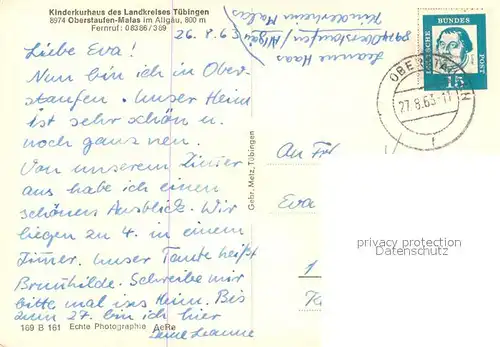 Kinderkurhaus des Landkreises Tübingen
8974 Oberstaufen-Malas im Allgäu, 800 m
Fernruf: 08386/369
26.8.63
Jeanne Haas
8974 Oberstaufen/Allgäu
Kinderheim Malas
Liebe Eva!
Nun bin ich in Ober-
staufen. Unser Heim
ist sehr schön u.
noch ganz neu.
Von unserem Zimmer
aus habe ich einen
schönen Ausblick. Wir
liegen zu 4. in einem
Zimmer. Unser Tante heißt
Brunhilde. Schreibe mir
bitte mal ins Heim. Bis
zum 27. bin ich hier
Deine Jeanne
169 B 161 Echte Photographie AeRa
Gebr. Metz, Tübingen
DEUTSCHE BUNDESPOST
15
OBERSTAUFEN
27.8.63-11
An
Eva
privacy protection
(Datenschutz)